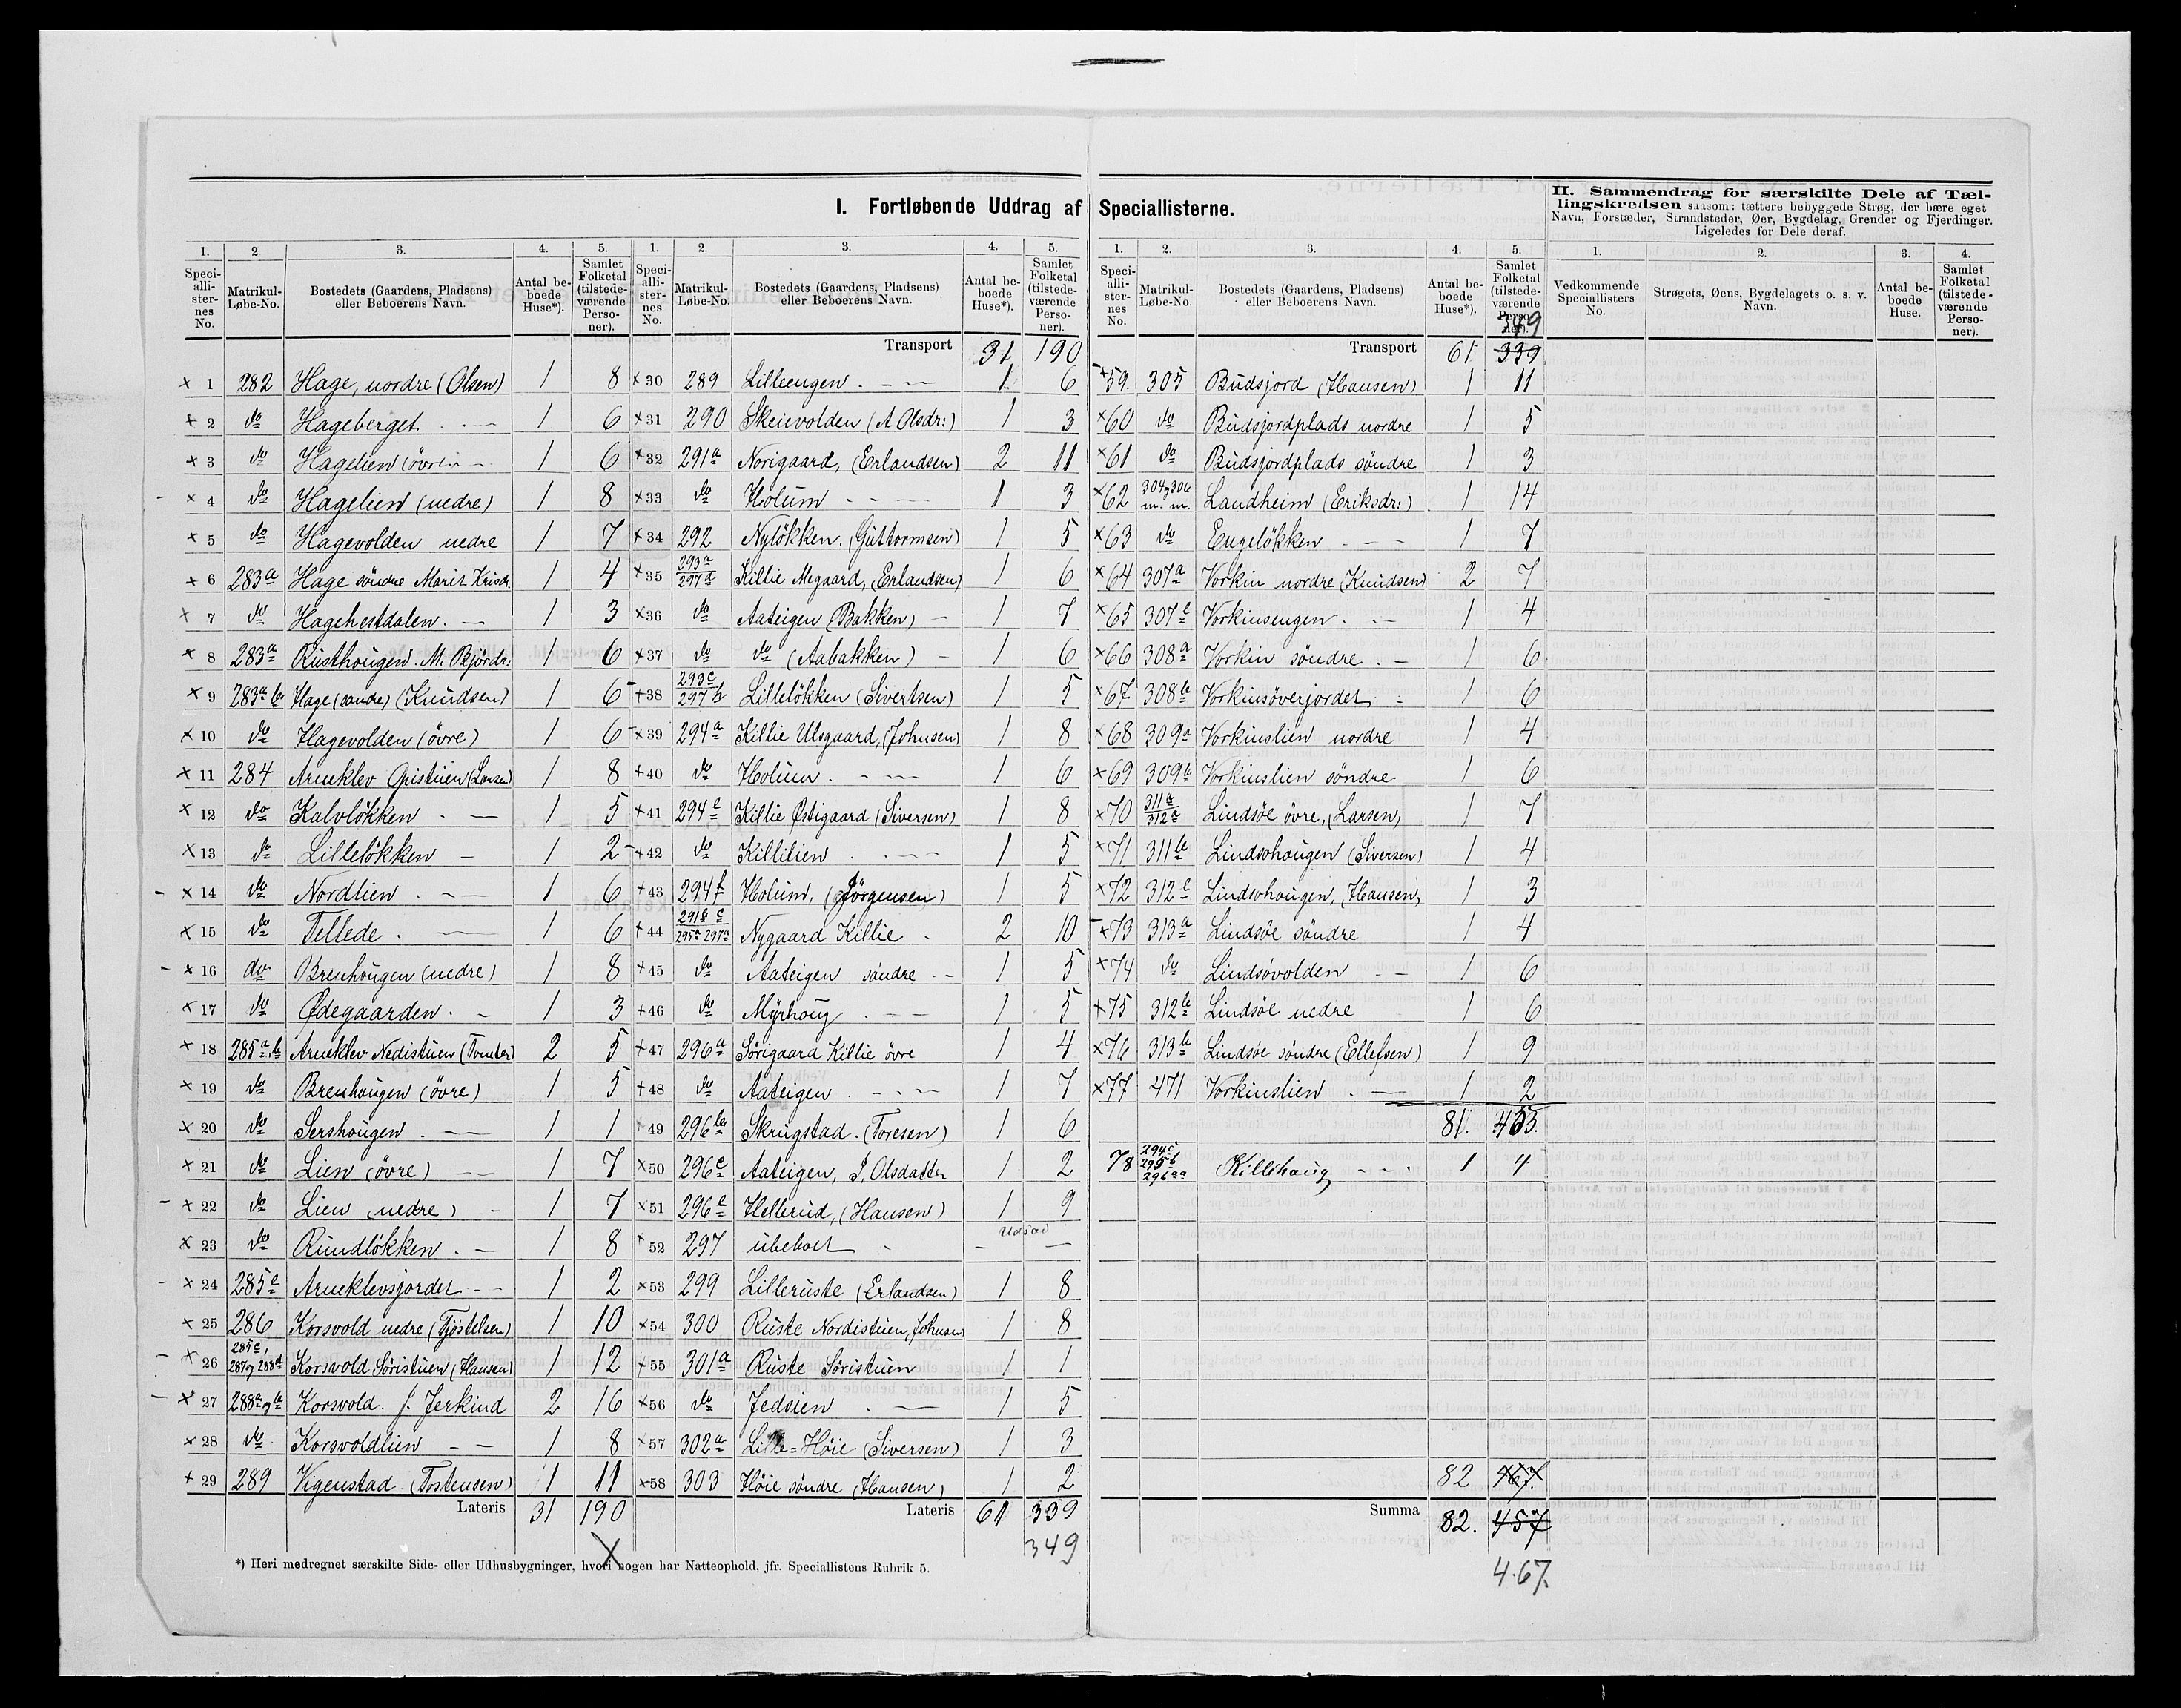 I. Fortløbende Uddrag af Speciallisterne.
II. Sammendrag for særskilte Dele af Tæl-
lingskredsen saasom: tættere bebyggede Strøg, der bære eget
Navn, Forstæder, Strandsteder, Øer, Bygdelag, Grender og Fjerdinger.
Ligeledes for Dele deraf.
1. 2 3. 4. 5.
Speciallisternes No. Matrikul-Løbe-No. Bostedets (Gaardens, Pladsens) eller Beboerens Navn. Antal beboede Huse*). Samlet Folketal (tilstedeværende Personer).
× 1 282 Hage, nordre (Olsen) 1 8
× 2 do Hageberget 1 6
× 3 do Hagelien (övre) 1 6
× 4 do Hagelien (nedre) 1 8
× 5 do Hagevolden nedre 1 7
× 6 283a Hage söndre Marit Krisdr. 1 4
× 7 do Hagehestdalen 1 3
× 8 283a Rusthougen M. Björdr: 1 6
× 9 283a b Hage (söndre) (Knudsen) 1 6
× 10 do Hagevolden (övre) 1 6
× 11 284 Arneklev Opistuen (Larsen) 1 8
× 12 do Kalvlökken 1 5
× 13 do Lillelökken 1 2
× 14 do Nordlien 1 6
× 15 do Tellede 1 6
× 16 do Brenhougen (nedre) 1 8
× 17 do Ødegaarden 1 3
× 18 285a.b Arneklev Nedistuen (Tomter) 2 5
× 19 do Brenhougen (övre) 1 5
× 20 do Sershougen 1 1
× 21 do Lien (övre) 1 7
× 22 do Lien (nedre) 1 7
× 23 do Rundlökken 1 8
× 24 285c Arneklevsjordet 1 2
× 25 286 Korsvold nedre (Tjöstelsen) 1 10
× 26 285c, 287 og 288d Korsvold Söristuen (Hansen) 1 12
× 27 288a og b Korsvold. J. Jerkind 2 16
× 28 do Korsvoldlien 1 8
+ 29 289 Vigenstad (Tostensen) 1 11
Lateris 31 190
X
*) Heri medregnet særskilte Side- eller Udhusbygninger, hvori nogen har Natteophold, jfr. Speciallistens Rubrik 5.
1. 2. 3. 4. 5.
Speciallisternes No. Matrikul-Løbe-No. Bostedets (Gaardens, Pladsens) eller Beboerens Navn. Antal beboede Huse*). Samlet Folketal (tilstedeværende Personer).
Transport 31 190
× 30 289 Lilleengen 1 6
× 31 290 Skeievolden (A Olsdr:) 1 3
× 32 291a Norigaard, (Erlandsen) 2 11
× 33 do Holum 1 3
× 34 292 Nylökken. (Guttormsen) 1 5
× 35 293a 297d Killie Megaard, (Erlandsen) 1 6
× 36 do Aateigen (Bakken) 1 7
× 37 do do (Aabakken) 1 6
+ 38 293c 297b Lillelökken (Sivertsen) 1 5
× 39 294a Killie Utsgaard, (Johnsen) 1 8
+ 40 do Holum 1 6
+ 41 294c Killie Østigaard (Siversen) 1 8
+ 42 do Killilien 1 5
+ 43 294f Holum, (Jörgensen) 1 5
+ 44 291b c 295a 297a Nygaard Killie 2 10
+ 45 do Aateigen söndre 1 5
+ 46 do Myrhoug 1 5
+ 47 296a Sörigaard Killie övre 1 4
+ 48 do Aateigen 1 7
49 296ba Skrugstad. (Toresen) 1 6
× 50 296c Aateigen, J. Olsdatter 1 2
× 51 296e Hellerud, (Hansen) 1 9
× 52 297 ubeboet Udsad – –
× 53 299 Lilleruste (Erlandsen) 1 8
× 54 300 Ruste Nordistuen, Johnsen 1 8
+ 55 301a Ruste Söristuen 1 1
× 56 do Jedsien 1 5
× 57 302a Lille=Höie (Siversen) 1 3
× 58 303 Höie söndre (Hansen) 1 2
Lateris 61 339
349
1. 2. 3. 4. 5.
Speciallisternes No. Matrikul-Løbe-No. Bostedets (Gaardens, Pladsens) eller Beboerens Navn. Antal beboede Huse*). Samlet Folketal (tilstedeværende Personer).
349
Transport 61 339
+ 59. 305 Budsjord (Hansen) 1 11
× 60 do Budsjordplads nordre 1 5
× 61 do Budsjordplads söndre 1 3
× 62 304 og 306 m. m. Landheim (Eriksdr:) 1 14
× 63 do Engelökken 1 7
× 64 307a Vorkin nordre (Knudsen) 2 7
× 65 307c Vorkinsengen 1 4
× 66 308a Vorkin söndre 1 6
× 67 308b Vorkinsöverjordet 1 6
× 68 309a Vorkinslien nordre 1 4
× 69 309a Vorkinslien söndre 1 6
× 70 311a 312a Lindsöe övre, (Larsen) 1 7
× 71 311b Lindsohougen (Siversen) 1 4
× 72 312c Lindsohougen, (Hansen) 1 3
× 73 313a Lindsöe söndre 1 4
× 74 do Lindsövolden 1 6
+ 75 312b Lindsöe nedre 1 6
× 76 313b Lindsöe söndre (Ellefsen) 1 9
× 77 471 Vorkinslien 1 2
81. 453.
78 294c 295b 296aa Killihaug 1 4
82 467.
Summa 82. 457
467.
1. 2. 3. 4.
Vedkommende Speciallisters No. Strøgets, Øens, Bygdelagets o. s. v. Navn. Antal beboede Huse. Samlet Folketal (tilstedeværende Personer).